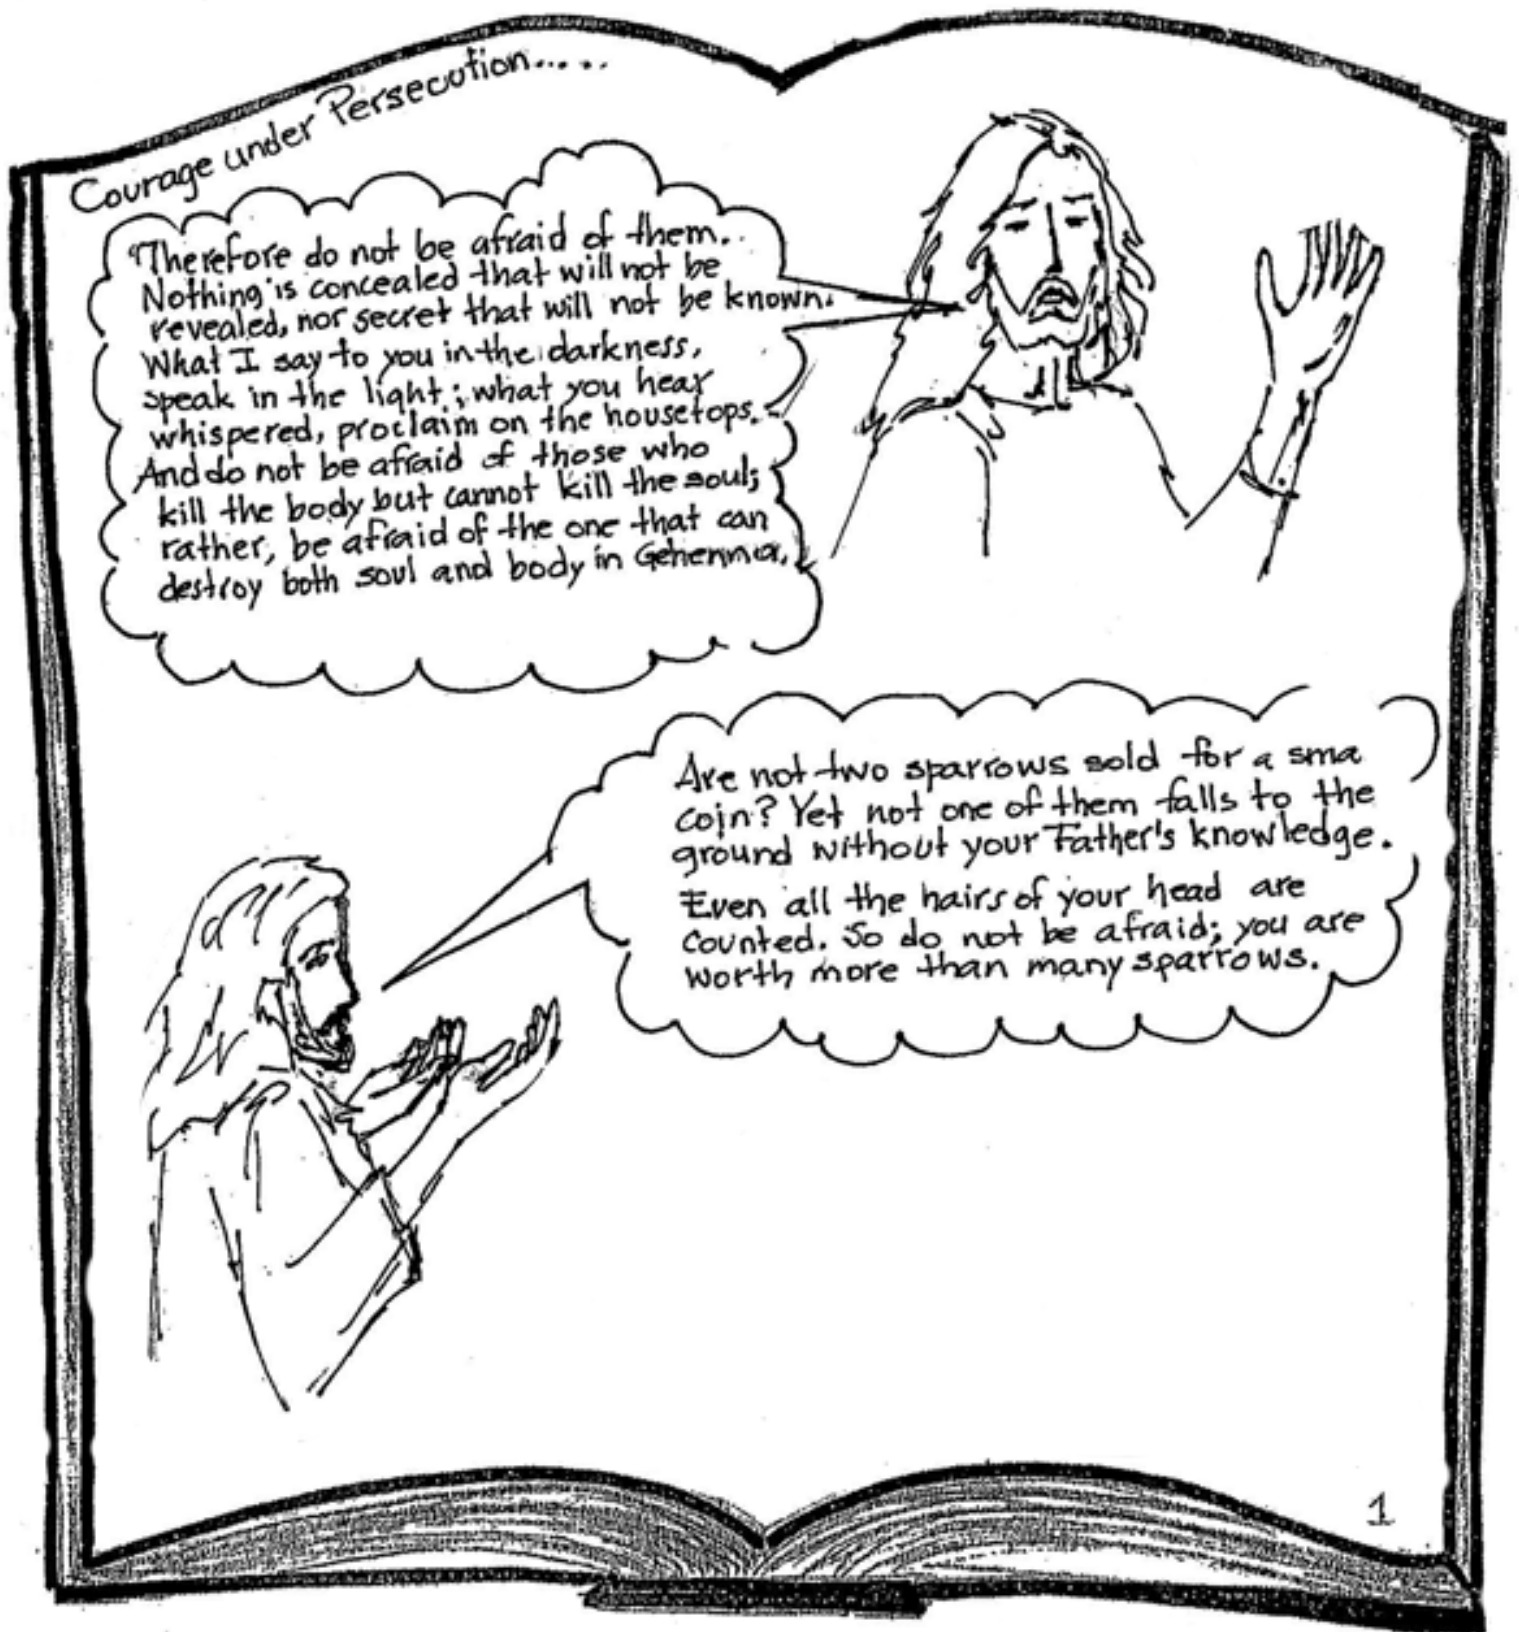 Courage under Persecution.....
"Therefore do not be afraid of them..
Nothing is concealed that will not be
revealed, nor secret that will not be known.
What I say to you in the darkness,
speak in the light; what you hear
whispered, proclaim on the housetops.
And do not be afraid of those who
kill the body but cannot kill the soul;
rather, be afraid of the one that can
destroy both soul and body in Gehenna.
Are not two sparrows sold for a sma
coin? Yet not one of them falls to the
ground without your Father's knowledge.
Even all the hairs of your head are
counted. So do not be afraid; you are
worth more than many sparrows.
1